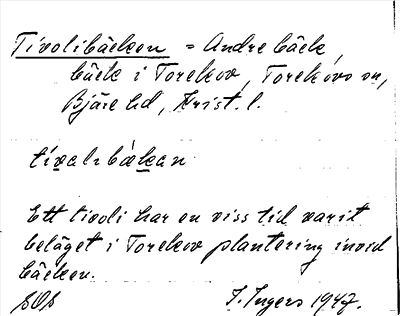 Tivolibäcken = Andre bäck,
bäck i Torekov, Torekovs sn,
Bjäre hd, Krist. l.
tívalɩbäkan
Ett tivoli har en viss tid varit
beläget i Torekov plantering invid
bäcken.
SOS I. Ingers 1947.